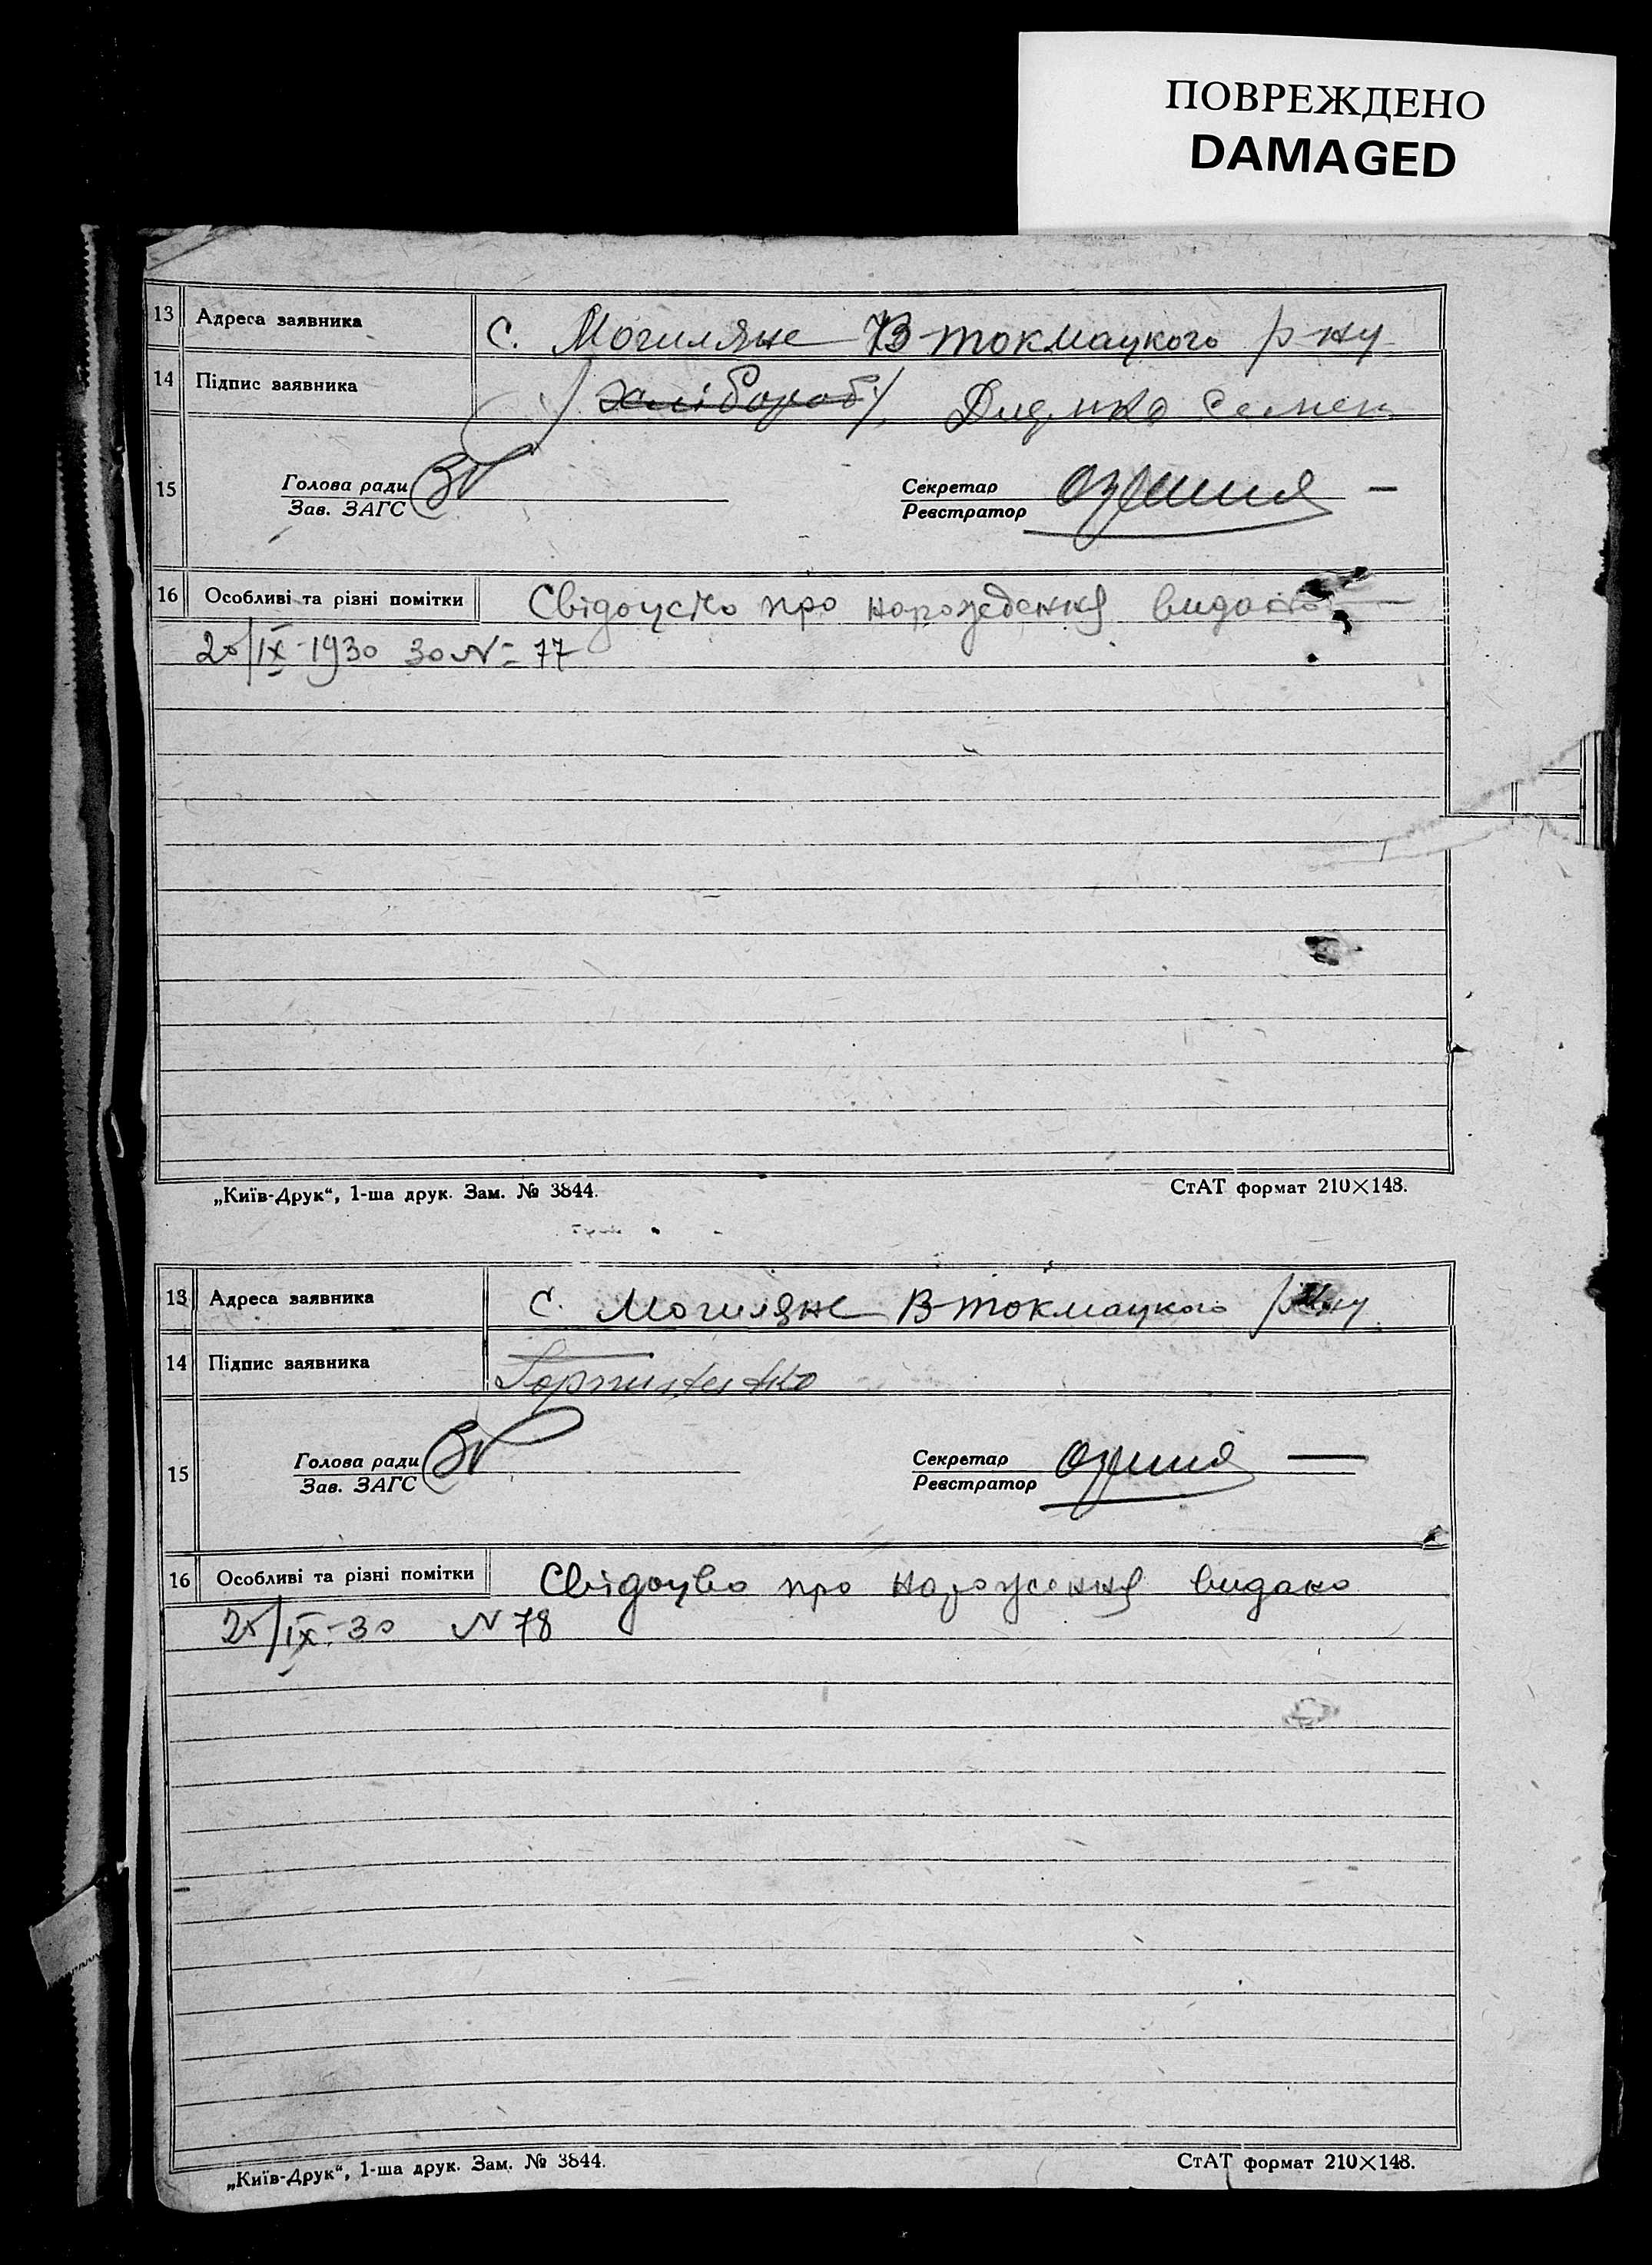 ПОВРЕЖДЕНО
DAMAGED
13 Адреса заявника с. Могиляне В-токмацкого р-ну
14 Підпис заявника /хлібороб/ Семен
15 Голова ради Секретар
Зав. ЗАГС Реєстратор
16 Особливі та різні помітки Свідоцство про нарождення видано
25/IX-1930 30 № 77
„Київ-Друк“, 1-ша друк. Зам. № 3844. СтАТ формат 210×148.
13 Адреса заявника с. Могиляне В-токмацкого р-ну
14 Підпис заявника
15 Голова ради Секретар
Зав. ЗАГС Реєстратор
16 Особливі та різні помітки Свідоцво про нароження видано
25/IX-30 N 78
„Київ-Друк“, 1-ша друк. Зам. № 3844. СтАТ формат 210×148.